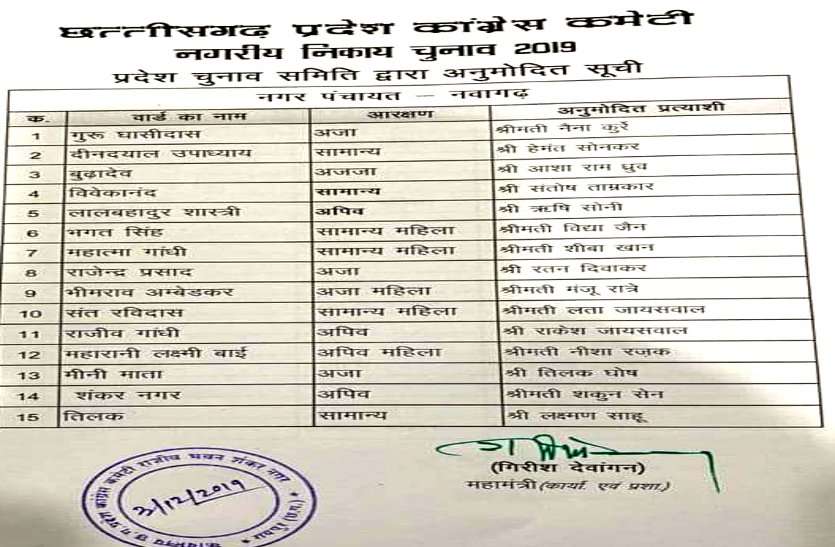 छत्तीसगढ़ प्रदेश कांग्रेस कमेटी
नगरीय निकाय चुनाव 2019
प्रदेश चुनाव समिति द्वारा अनुमोदित सूची
नगर पंचायत – नवागढ़
क. वार्ड का नाम आरक्षण अनुमोदित प्रत्याशी
1 गुरू घासीदास अजा श्रीमती नैना कुर्रे
2 दीनदयाल उपाध्याय सामान्य श्री हेमंत सोनकर
3 बुढ़ादेव अजजा श्री आशा राम ध्रुव
4 विवेकानंद सामान्य श्री संतोष ताम्रकार
5 लालबहादुर शास्त्री अपिव श्री ऋषि सोनी
6 भगत सिंह सामान्य महिला श्रीमती विद्या जैन
7 महात्मा गांधी सामान्य महिला श्रीमती शीबा खान
8 राजेन्द्र प्रसाद अजा श्री रतन दिवाकर
9 भीमराव अम्बेडकर अजा महिला श्रीमती मंजू रात्रे
10 संत रविदास सामान्य महिला श्रीमती लता जायसवाल
11 राजीव गांधी अपिव श्री राकेश जायसवाल
12 महारानी लक्ष्मी बाई अपिव महिला श्रीमती नीशा रजक
13 मीनी माता अजा श्री तिलक घोष
14 शंकर नगर अपिव श्रीमती शकुन सेन
15 तिलक सामान्य श्री लक्ष्मण साहू
(गिरीश देवांगन)
महामंत्री (कार्या. एवं प्रशा.)
प्रदेश कांग्रेस कमेटी राजीव भवन शंकर नगर
2/12/2019